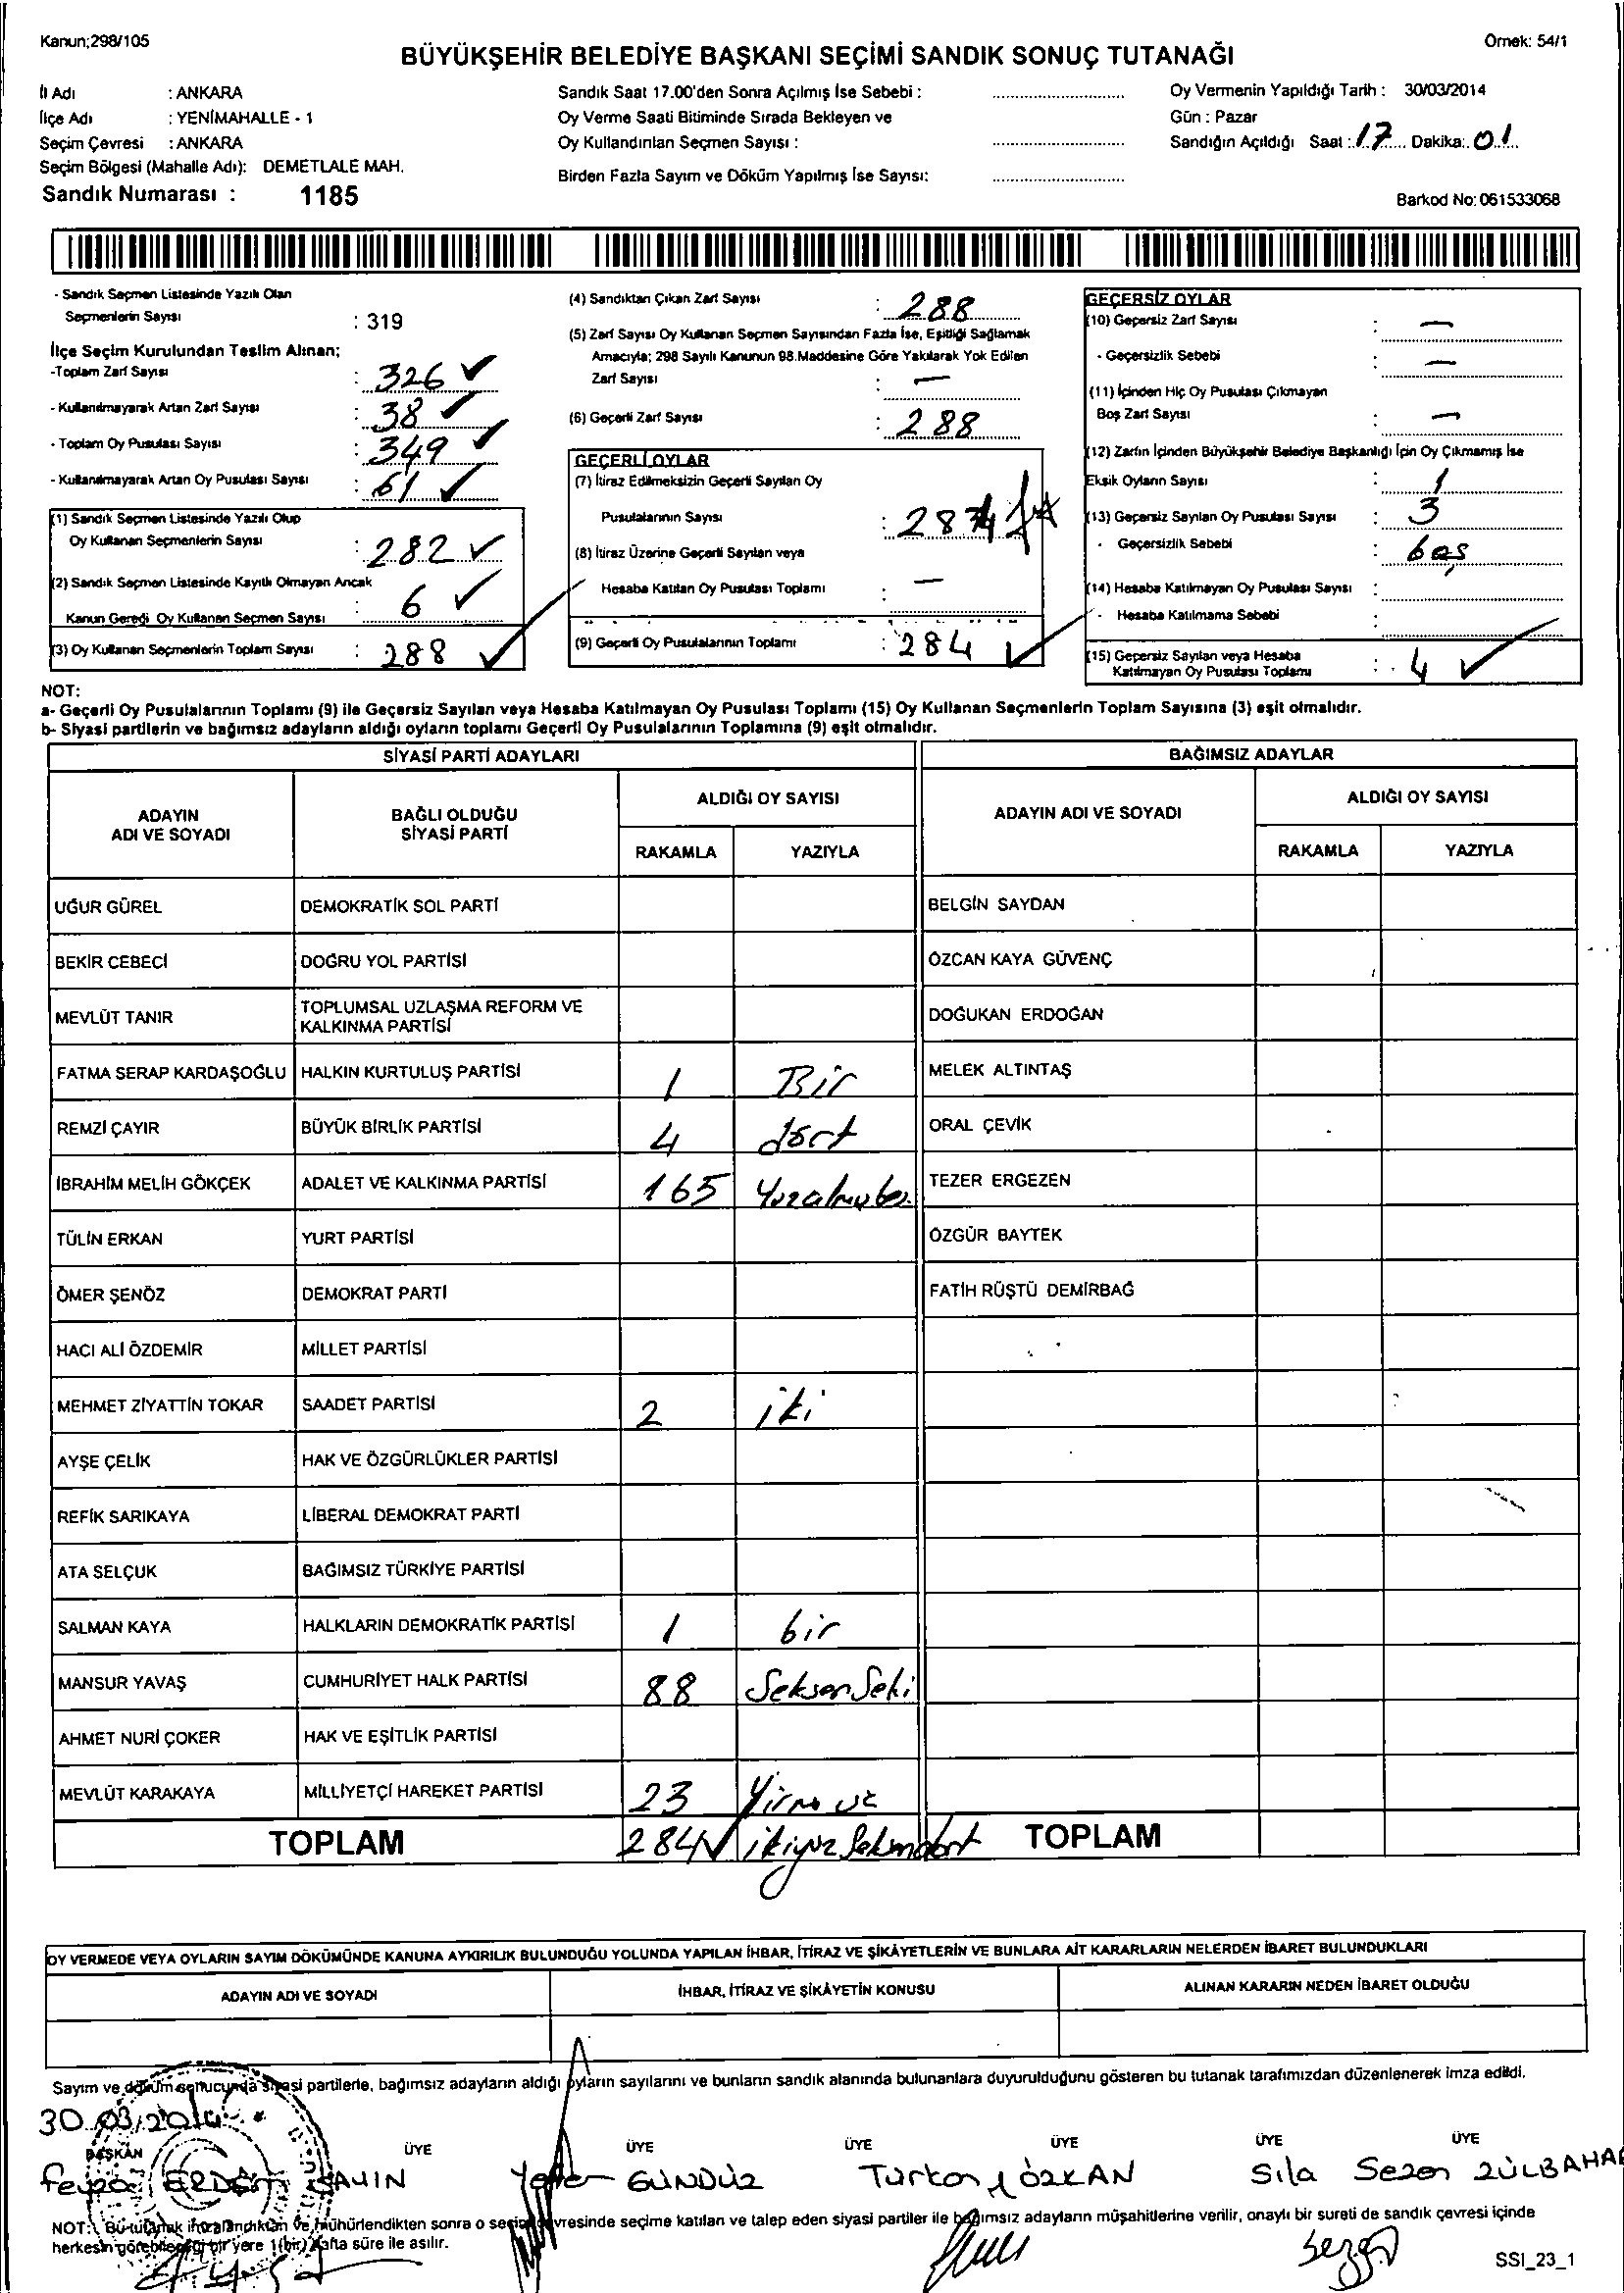 Kanun;298/105
Örnek: 54/1
BÜYÜKŞEHİR BELEDİYE BAŞKANI SEÇİMİ SANDIK SONUÇ TUTANAĞI
İl Adı : ANKARA
İlçe Adı : YENİMAHALLE - 1
Seçim Çevresi : ANKARA
Seçim Bölgesi (Mahalle Adı): DEMETLALE MAH.
Sandık Numarası : 1185
Sandık Saat 17.00'den Sonra Açılmış İse Sebebi :
Oy Verme Saati Bitiminde Sırada Bekleyen ve
Oy Kullandırılan Seçmen Sayısı :
Birden Fazla Sayım ve Döküm Yapılmış İse Sayısı:
Oy Vermenin Yapıldığı Tarih : 30/03/2014
Gün : Pazar
Sandığın Açıldığı Saat : 17 Dakika: 01
Barkod No: 061533068
- Sandık Seçmen Listesinde Yazılı Olan
Seçmenlerin Sayısı : 319
İlçe Seçim Kurulundan Teslim Alınan;
-Toplam Zarf Sayısı : 326
- Kullanılmayarak Artan Zarf Sayısı : 38
- Toplam Oy Pusulası Sayısı : 349
- Kullanılmayarak Artan Oy Pusulası Sayısı : 61
(1) Sandık Seçmen Listesinde Yazılı Olup
Oy Kullanan Seçmenlerin Sayısı : 282
(2) Sandık Seçmen Listesinde Kayıtlı Olmayan Ancak
Kanun Gereği Oy Kullanan Seçmen Sayısı : 6
(3) Oy Kullanan Seçmenlerin Toplam Sayısı : 288
(4) Sandıktan Çıkan Zarf Sayısı : 288
(5) Zarf Sayısı Oy Kullanan Seçmen Sayısından Fazla İse, Eşitliği Sağlamak
Amacıyla; 298 Sayılı Kanunun 98.Maddesine Göre Yakılarak Yok Edilen
Zarf Sayısı : —
(6) Geçerli Zarf Sayısı : 288
GEÇERLİ OYLAR
(7) İtiraz Edilmeksizin Geçerli Sayılan Oy
Pusulalarının Sayısı : 284
(8) İtiraz Üzerine Geçerli Sayılan veya
Hesaba Katılan Oy Pusulası Toplamı : —
(9) Geçerli Oy Pusulalarının Toplamı : 284
GEÇERSİZ OYLAR
(10) Geçersiz Zarf Sayısı : —
- Geçersizlik Sebebi : —
(11) İçinden Hiç Oy Pusulası Çıkmayan
Boş Zarf Sayısı : —
(12) Zarfın İçinden Büyükşehir Belediye Başkanlığı İçin Oy Çıkmamış İse
Eksik Oyların Sayısı : 1
(13) Geçersiz Sayılan Oy Pusulası Sayısı : 3
- Geçersizlik Sebebi : boş
(14) Hesaba Katılmayan Oy Pusulası Sayısı :
- Hesaba Katılmama Sebebi :
(15) Geçersiz Sayılan veya Hesaba
Katılmayan Oy Pusulası Toplamı : 4
NOT:
a- Geçerli Oy Pusulalarının Toplamı (9) ile Geçersiz Sayılan veya Hesaba Katılmayan Oy Pusulası Toplamı (15) Oy Kullanan Seçmenlerin Toplam Sayısına (3) eşit olmalıdır.
b- Siyasi partilerin ve bağımsız adayların aldığı oyların toplamı Geçerli Oy Pusulalarının Toplamına (9) eşit olmalıdır.
SİYASİ PARTİ ADAYLARI
BAĞIMSIZ ADAYLAR
ADAYIN ADI VE SOYADI
BAĞLI OLDUĞU SİYASİ PARTİ
ALDIĞI OY SAYISI
RAKAMLA YAZIYLA
ADAYIN ADI VE SOYADI
ALDIĞI OY SAYISI
RAKAMLA YAZIYLA
UĞUR GÜREL DEMOKRATİK SOL PARTİ BELGİN SAYDAN
BEKİR CEBECİ DOĞRU YOL PARTİSİ ÖZCAN KAYA GÜVENÇ
MEVLÜT TANIR TOPLUMSAL UZLAŞMA REFORM VE KALKINMA PARTİSİ DOĞUKAN ERDOĞAN
FATMA SERAP KARDAŞOĞLU HALKIN KURTULUŞ PARTİSİ 1 Bir MELEK ALTINTAŞ
REMZİ ÇAYIR BÜYÜK BİRLİK PARTİSİ 4 dört ORAL ÇEVİK
İBRAHİM MELİH GÖKÇEK ADALET VE KALKINMA PARTİSİ 165 TEZER ERGEZEN
TÜLİN ERKAN YURT PARTİSİ ÖZGÜR BAYTEK
ÖMER ŞENÖZ DEMOKRAT PARTİ FATİH RÜŞTÜ DEMİRBAĞ
HACI ALİ ÖZDEMİR MİLLET PARTİSİ
MEHMET ZİYATTİN TOKAR SAADET PARTİSİ 2 iki
AYŞE ÇELİK HAK VE ÖZGÜRLÜKLER PARTİSİ
REFİK SARIKAYA LİBERAL DEMOKRAT PARTİ
ATA SELÇUK BAĞIMSIZ TÜRKİYE PARTİSİ
SALMAN KAYA HALKLARIN DEMOKRATİK PARTİSİ 1 bir
MANSUR YAVAŞ CUMHURİYET HALK PARTİSİ 88 SeksenSeki
AHMET NURİ ÇOKER HAK VE EŞİTLİK PARTİSİ
MEVLÜT KARAKAYA MİLLİYETÇİ HAREKET PARTİSİ 23
TOPLAM 284 TOPLAM
OY VERMEDE VEYA OYLARIN SAYIM DÖKÜMÜNDE KANUNA AYKIRILIK BULUNDUĞU YOLUNDA YAPILAN İHBAR, İTİRAZ VE ŞİKÂYETLERİN VE BUNLARA AİT KARARLARIN NELERDEN İBARET BULUNDUKLARI
ADAYIN ADI VE SOYADI İHBAR, İTİRAZ VE ŞİKÂYETİN KONUSU ALINAN KARARIN NEDEN İBARET OLDUĞU
Sayım ve döküm sonucunda siyasi partilerle, bağımsız adayların aldığı oyların sayılarını ve bunların sandık alanında bulunanlara duyurulduğunu gösteren bu tutanak tarafımızdan düzenlenerek imza edildi.
30.03.2014
BAŞKAN ÜYE ÜYE ÜYE ÜYE ÜYE ÜYE
ERDEM ŞAHİN GÜNDÜZ ÖZKAN Sıla Sezen ZÜLBAHAR
NOT: Bu tutanak imzalandıktan ve mühürlendikten sonra o seçim çevresinde seçime katılan ve talep eden siyasi partiler ile bağımsız adayların müşahitlerine verilir, onaylı bir sureti de sandık çevresi içinde
herkesin görebileceği bir yere 1(bir) hafta süre ile asılır.
SSI_23_1